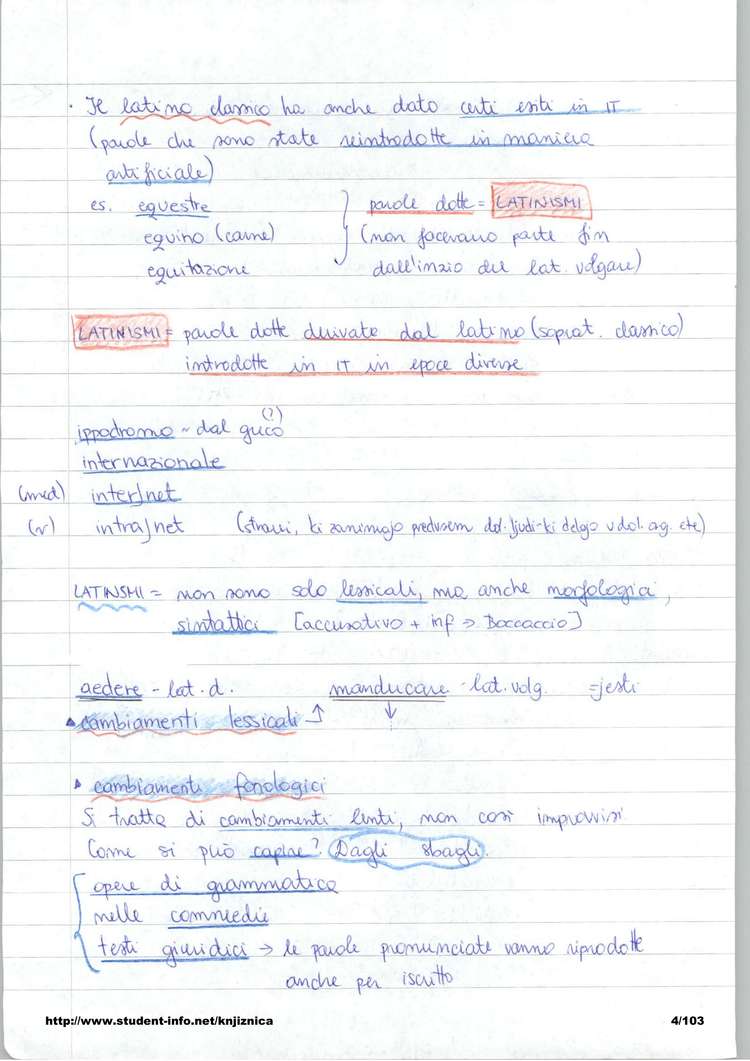 · Il latino classico ha anche dato certi esiti in IT
(parole che sono state reintrodotte in maniera
artificiale)
es. equestre } parole dotte = LATINISMI
equino (carne) (non facevano parte fin
equitazione dall'inizio del lat. volgare)
LATINISMI = parole dotte derivate dal latino (soprat. classico)
introdotte in IT in epoce diverse
(?)
ippodromo ~ dal greco
internazionale
(med) inter|net
(v) intra|net (stravi, ki zanimajo predvsem dol. ljudi-ki delajo v dol. org. etc)
LATINSMI = non sono solo lessicali, ma anche morfologici,
sintattici [accusativo + inf → Boccaccio]
aedere - lat. cl. manducare - lat. volg. = jesti
▲ cambiamenti lessicali ↑ ↓
▲ cambiamenti fonologici
Si tratta di cambiamenti lenti, non così improvvisi
Come si può capire? Dagli sbagli.
opere di grammatica
nelle commedie
testi giuridici → le parole pronunciate vanno riprodotte
anche per iscritto
http://www.student-info.net/knjiznica 4/103